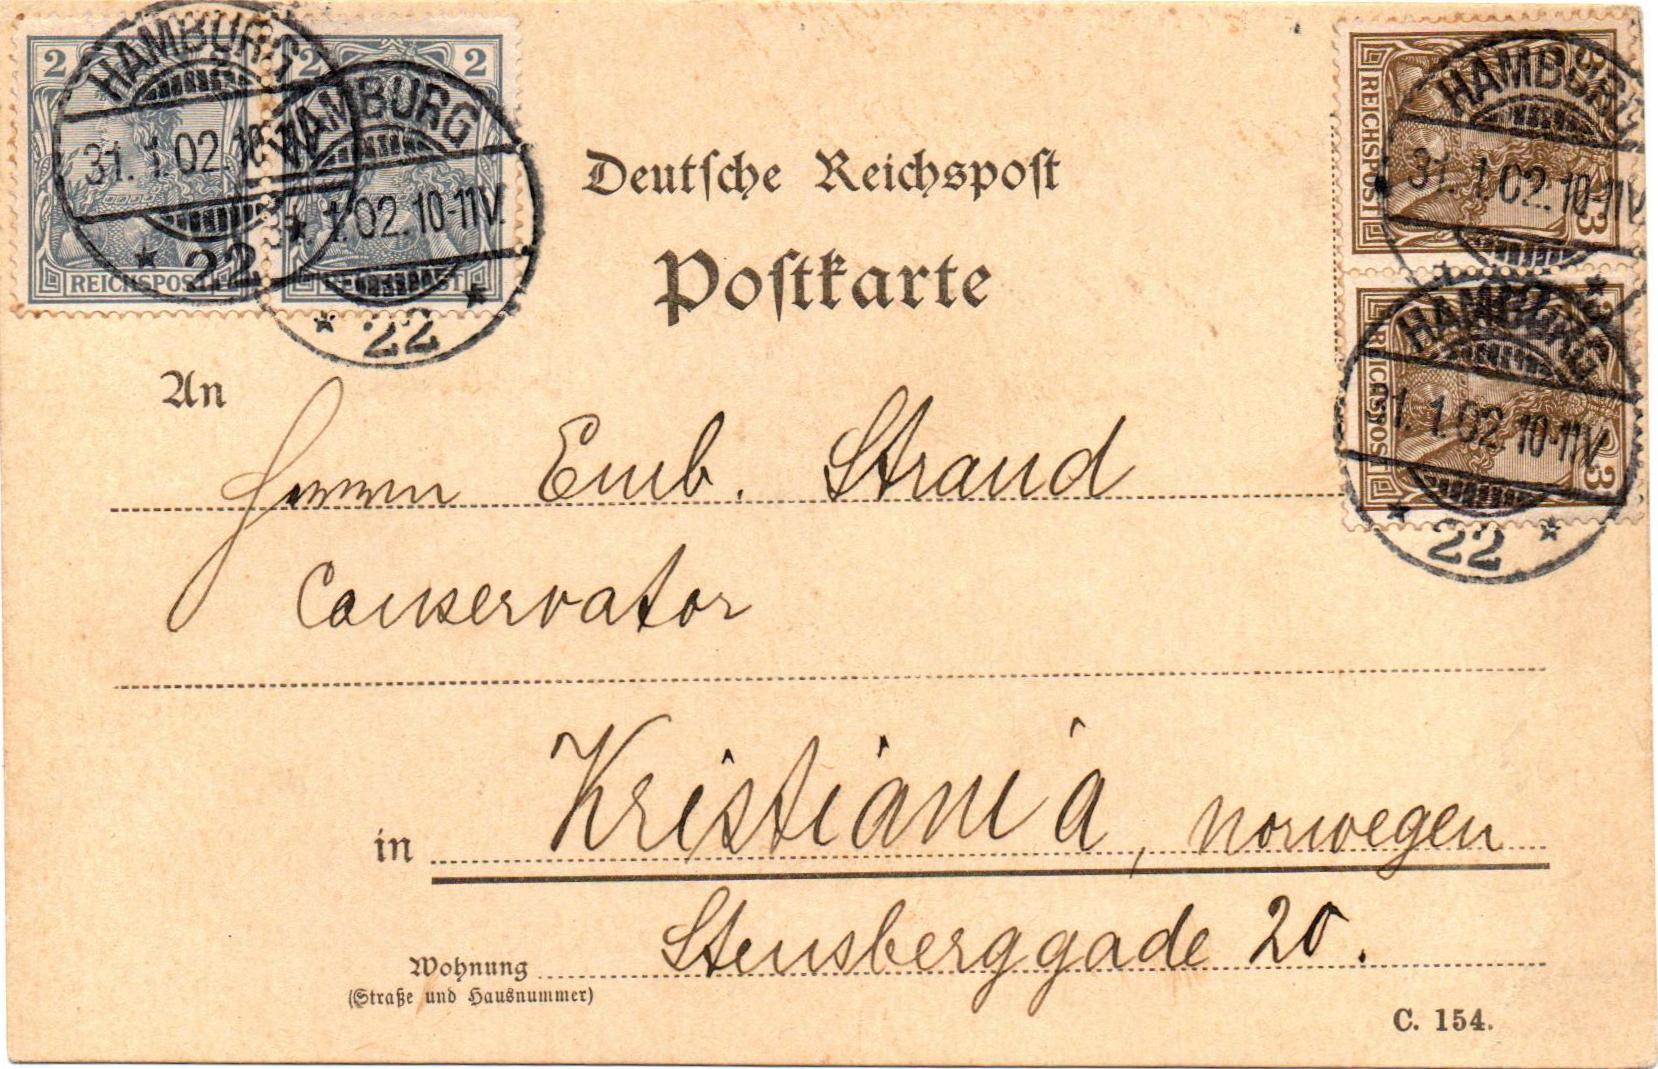 2 2 2
REICHSPOST
REICHSPOST
HAMBURG
31. 1. 02. 10-11V.
* 22 *
HAMBURG
1. 02. 10-11V.
* 22 *
3
REICHSPOST
3
HAMBURG
31. 1. 02. 10-11V.
3
REICHSPOST
3
HAMBURG
31. 1. 02. 10-11V.
* 22 *
Deutsche Reichspost
Postkarte
An
Herrn Emb. Strand
Conservator
in Kristiania, Norwegen
Wohnung Stensberggade 20.
(Straße und Hausnummer)
C. 154.